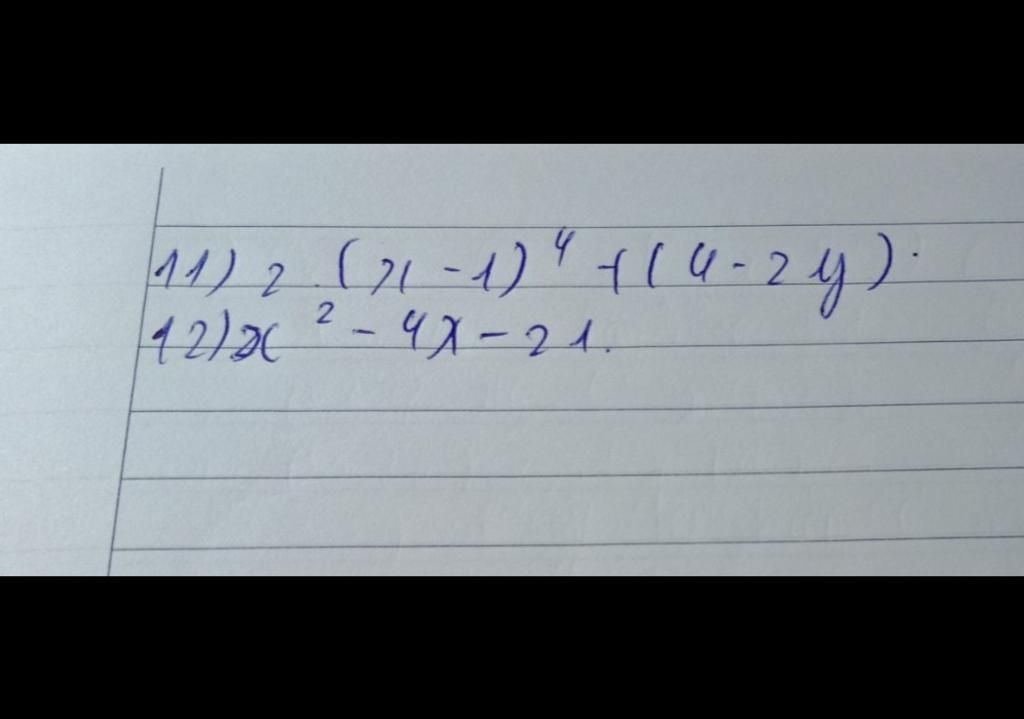 11) 2 (x-1)⁴ + (4-2y).
12) x² - 4x - 21.